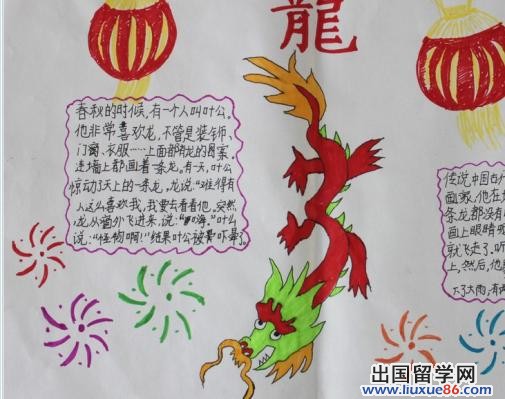 龍
春秋的时候，有一个人叫叶公。
他非常喜欢龙，不管是装饰、
门窗、衣服……上面都有龙的图案。
连墙上都画着一条龙。有一天，叶公
惊动了天上的一条龙，龙说：“难得有
人这么喜欢我，我要去看看他。突然
龙从窗外飞进来，说：“嗨。”叶公
说：“怪物啊！”结果叶公被吓晕了。
传说，中国古
画家，他在
条龙都没有
画上眼睛
就飞走了。听
上，然后，他
下了大雨，有两
出国留学网
www.liuxue86.com